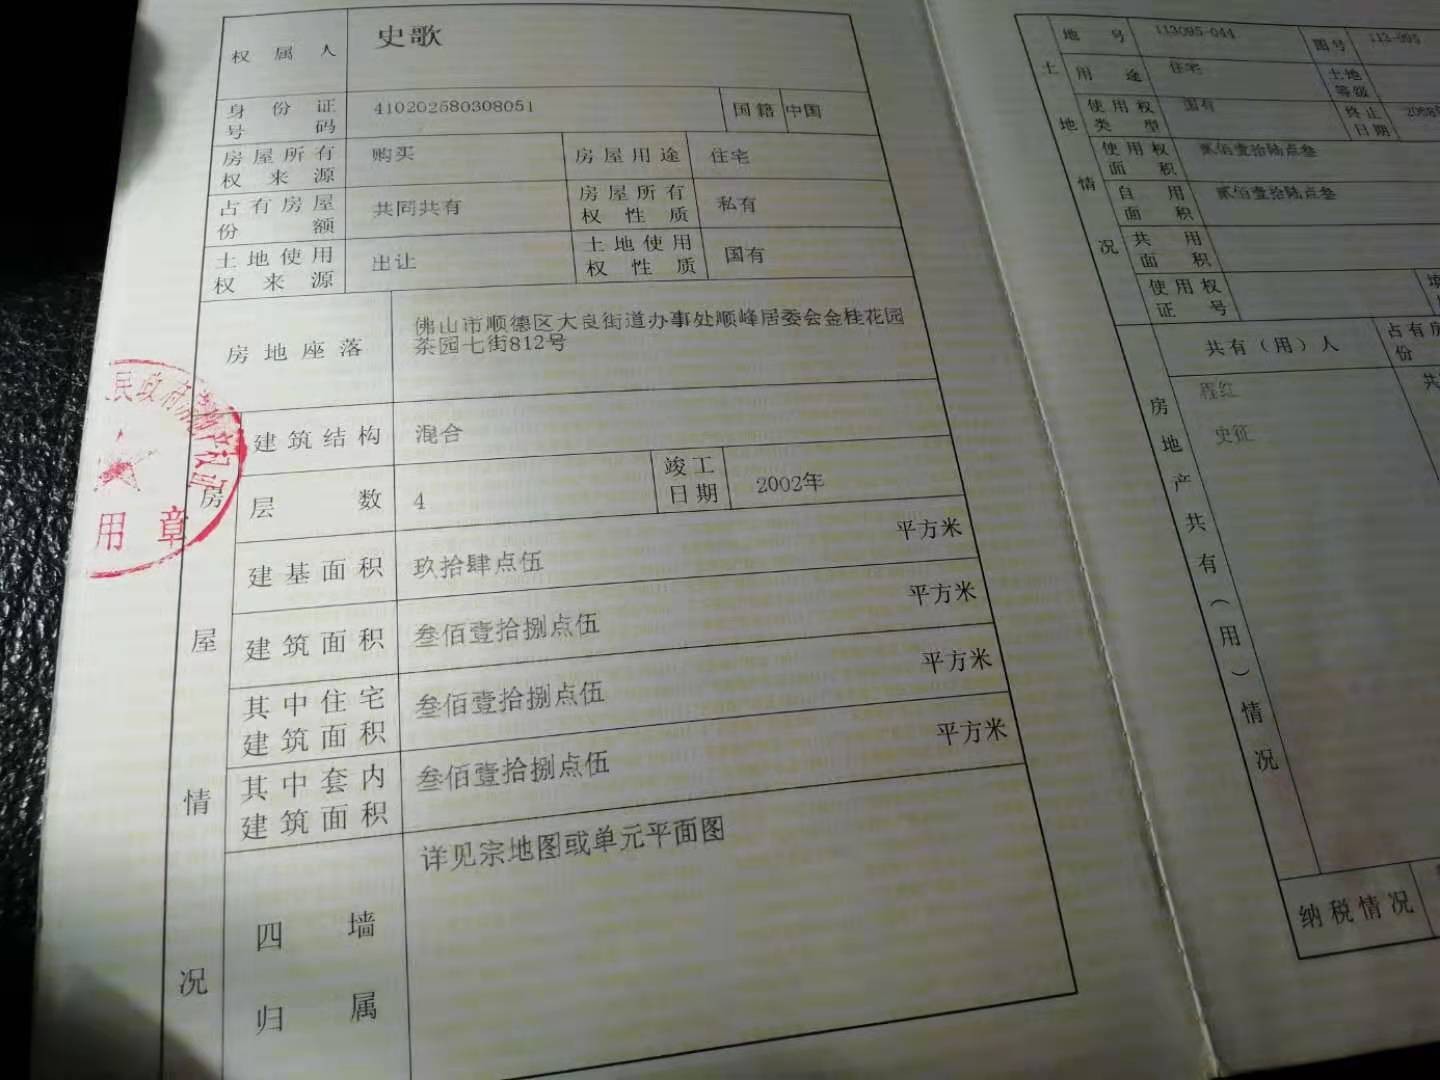 权属人 史歌
身份证号码 410202580308051 国籍 中国
房屋所有权来源 购买 房屋用途 住宅
占有房屋份额 共同共有 房屋所有权性质 私有
土地使用权来源 出让 土地使用权性质 国有
房地座落 佛山市顺德区大良街道办事处顺峰居委会金桂花园
茶园七街812号
房屋情况
建筑结构 混合
层数 4 竣工日期 2002年
建基面积 玖拾肆点伍 平方米
建筑面积 叁佰壹拾捌点伍 平方米
其中住宅建筑面积 叁佰壹拾捌点伍 平方米
其中套内建筑面积 叁佰壹拾捌点伍 平方米
四墙归属 详见宗地图或单元平面图
民政府
用章
土地情况
地号 113095-044 图号
用途 住宅 土地等级
使用权类型 国有 终止日期
使用权面积 贰佰壹拾陆点叁
自用面积 贰佰壹拾陆点叁
共用面积
使用权证号 填
房地产共有(用)情况
共有(用)人 占有房
份
程红 共
史征
纳税情况